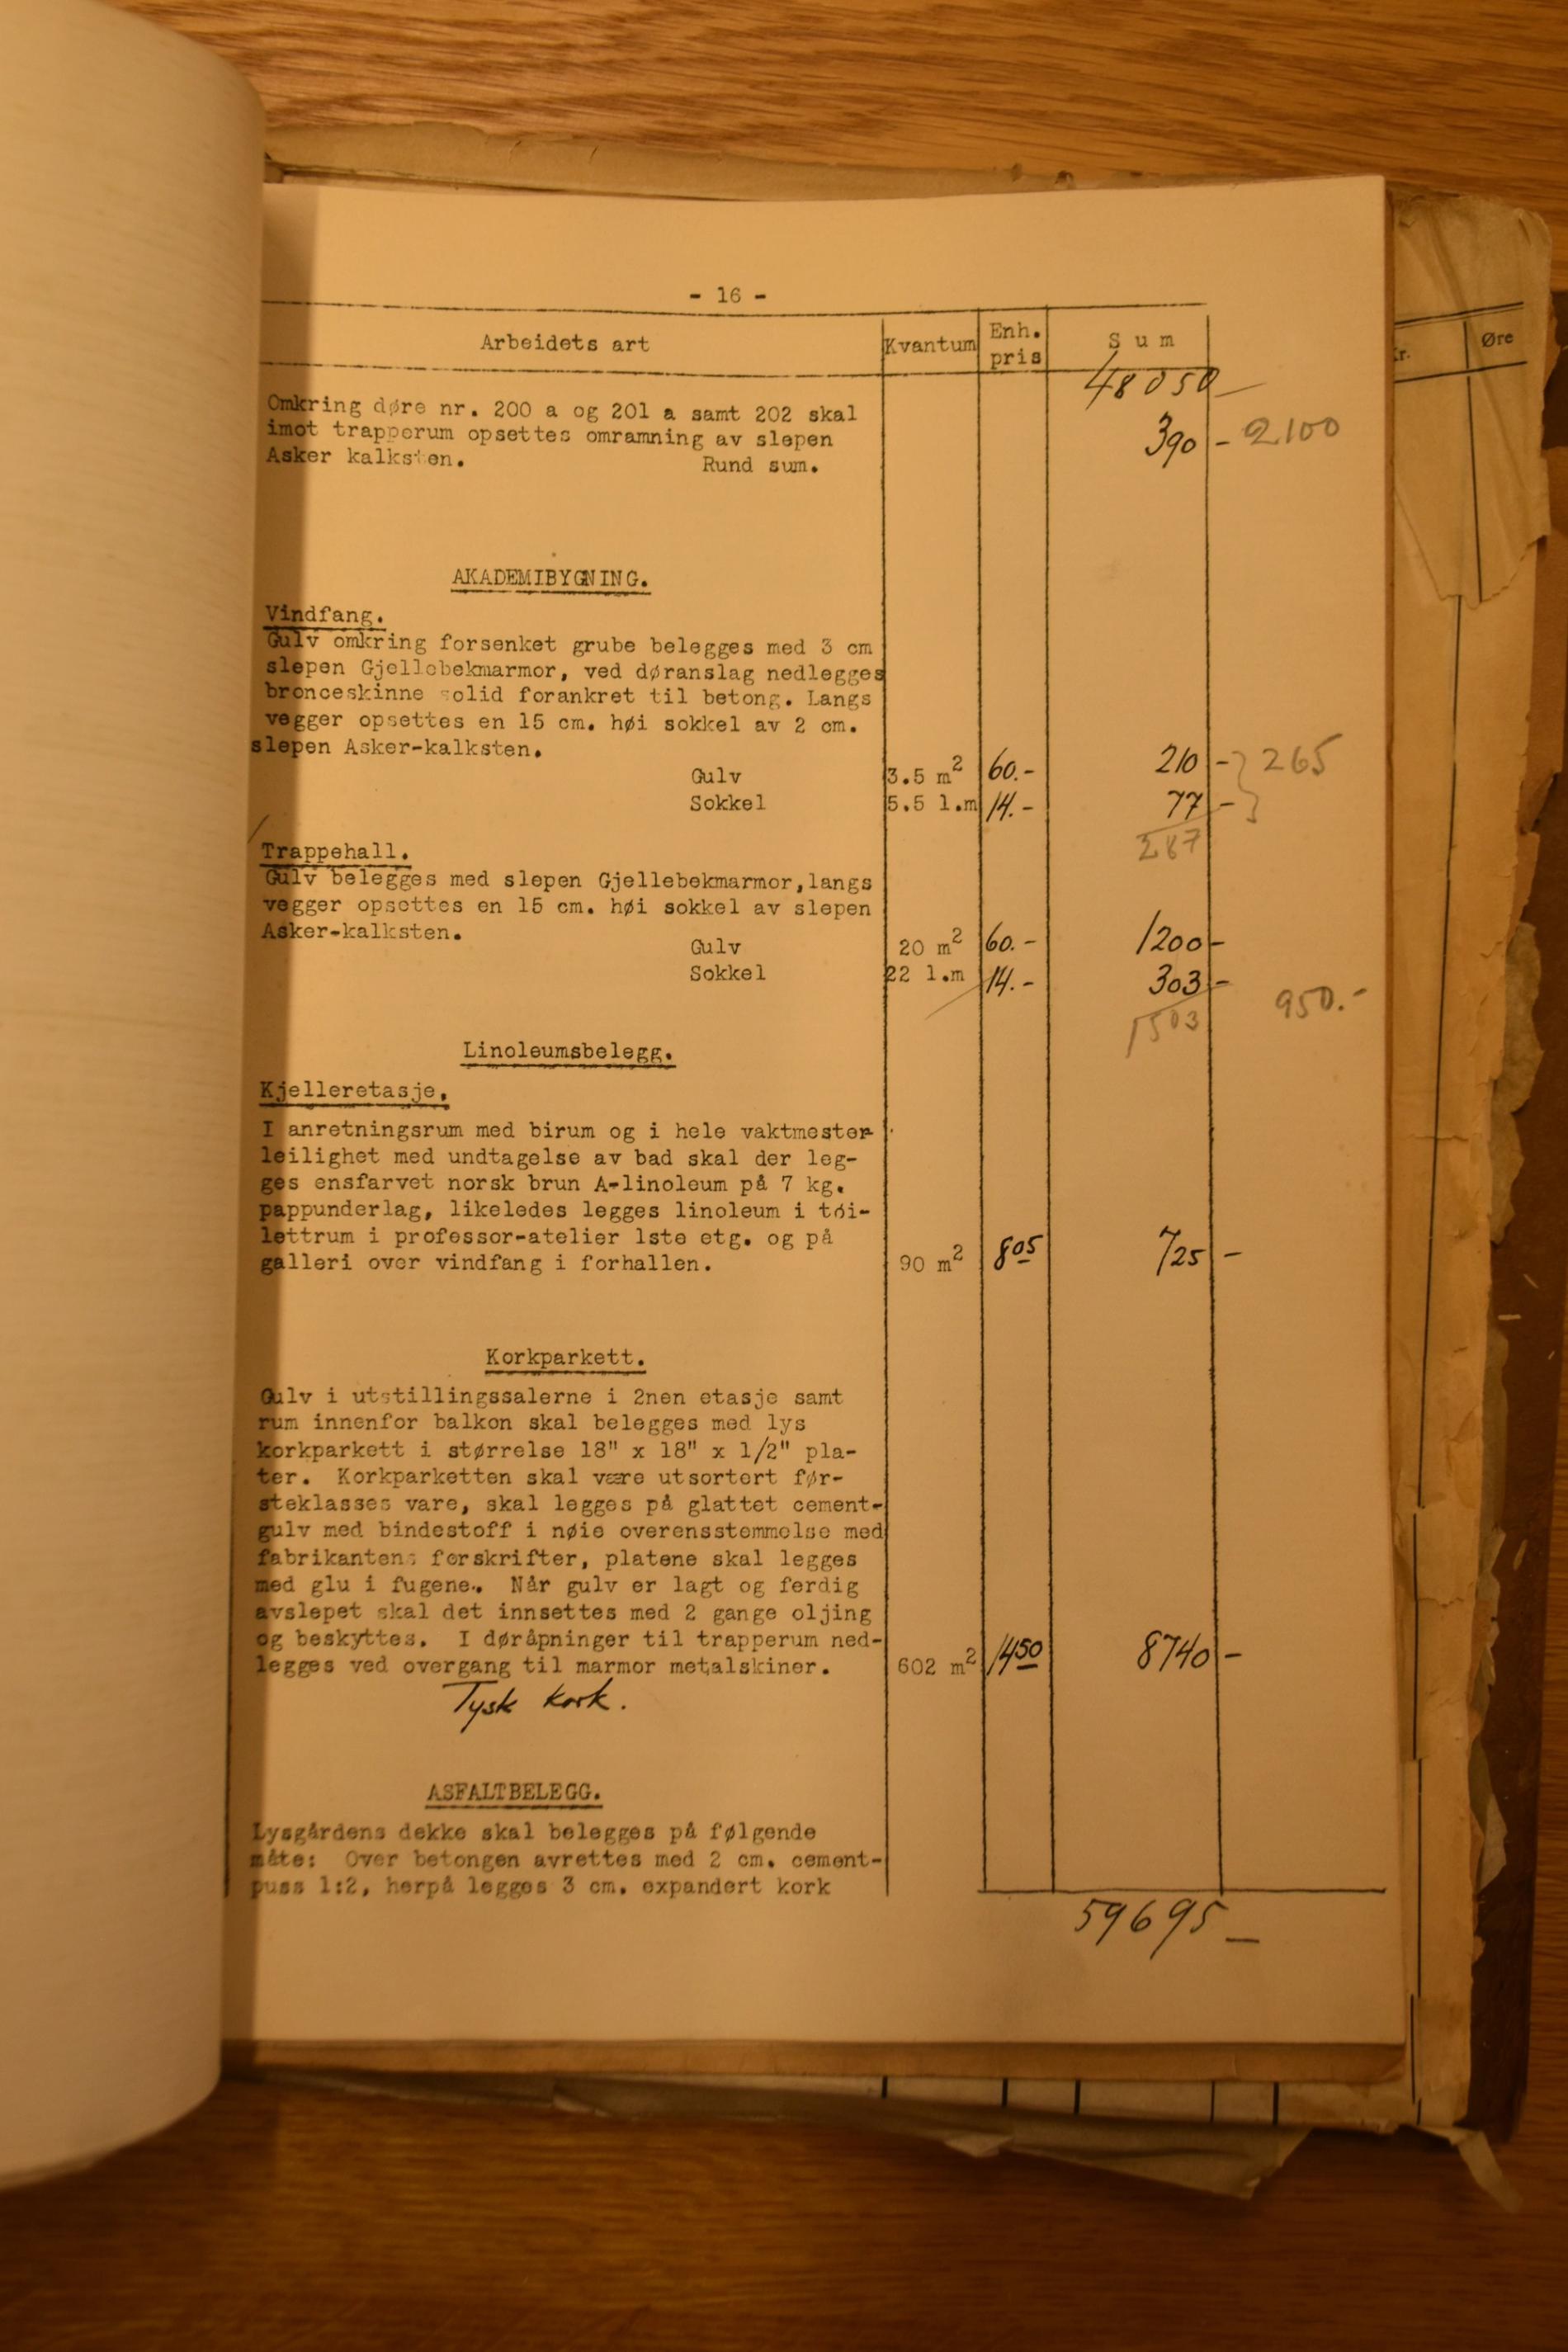 - 16 -
Arbeidets art Kvantum Enh. pris Sum
Kr. Øre
48050 -
Omkring døre nr. 200 a og 201 a samt 202 skal
imot trapperum opsettes omramning av slepen 390 - 2100
Asker kalksten. Rund sum.
AKADEMIBYGNING.
Vindfang.
Gulv omkring forsenket grube belegges med 3 cm
slepen Gjellebekmarmor, ved døranslag nedlegges
bronceskinne solid forankret til betong. Langs
vegger opsettes en 15 cm. høi sokkel av 2 cm.
slepen Asker-kalksten.
Gulv 3.5 m² 60.- 210 - 265
Sokkel 5.5 l.m 14.- 77 -
287
Trappehall.
Gulv belegges med slepen Gjellebekmarmor,langs
vegger opsettes en 15 cm. høi sokkel av slepen
Asker-kalksten.
Gulv 20 m² 60.- 1200 -
Sokkel 22 l.m 14.- 303 -
1503 950.-
Linoleumsbelegg.
Kjelleretasje.
I anretningsrum med birum og i hele vaktmester-
leilighet med undtagelse av bad skal der leg-
ges ensfarvet norsk brun A-linoleum på 7 kg.
pappunderlag, likeledes legges linoleum i tøi-
lettrum i professor-atelier 1ste etg. og på
galleri over vindfang i forhallen. 90 m² 8 05 725 -
Korkparkett.
Gulv i utstillingssalerne i 2nen etasje samt
rum innenfor balkon skal belegges med lys
korkparkett i størrelse 18" x 18" x 1/2" pla-
ter. Korkparketten skal være utsortert før-
steklasses vare, skal legges på glattet cement-
gulv med bindestoff i nøie overensstemmelse med
fabrikantens forskrifter, platene skal legges
med glu i fugene. Når gulv er lagt og ferdig
avslepet skal det innsettes med 2 gange oljing
og beskyttes. I døråpninger til trapperum ned-
legges ved overgang til marmor metalskiner. 602 m² 14 50 8740 -
Tysk kork.
ASFALTBELEGG.
Lysgårdens dekke skal belegges på følgende
måte: Over betongen avrettes med 2 cm. cement-
puss 1:2, herpå legges 3 cm. expandert kork
59695 -